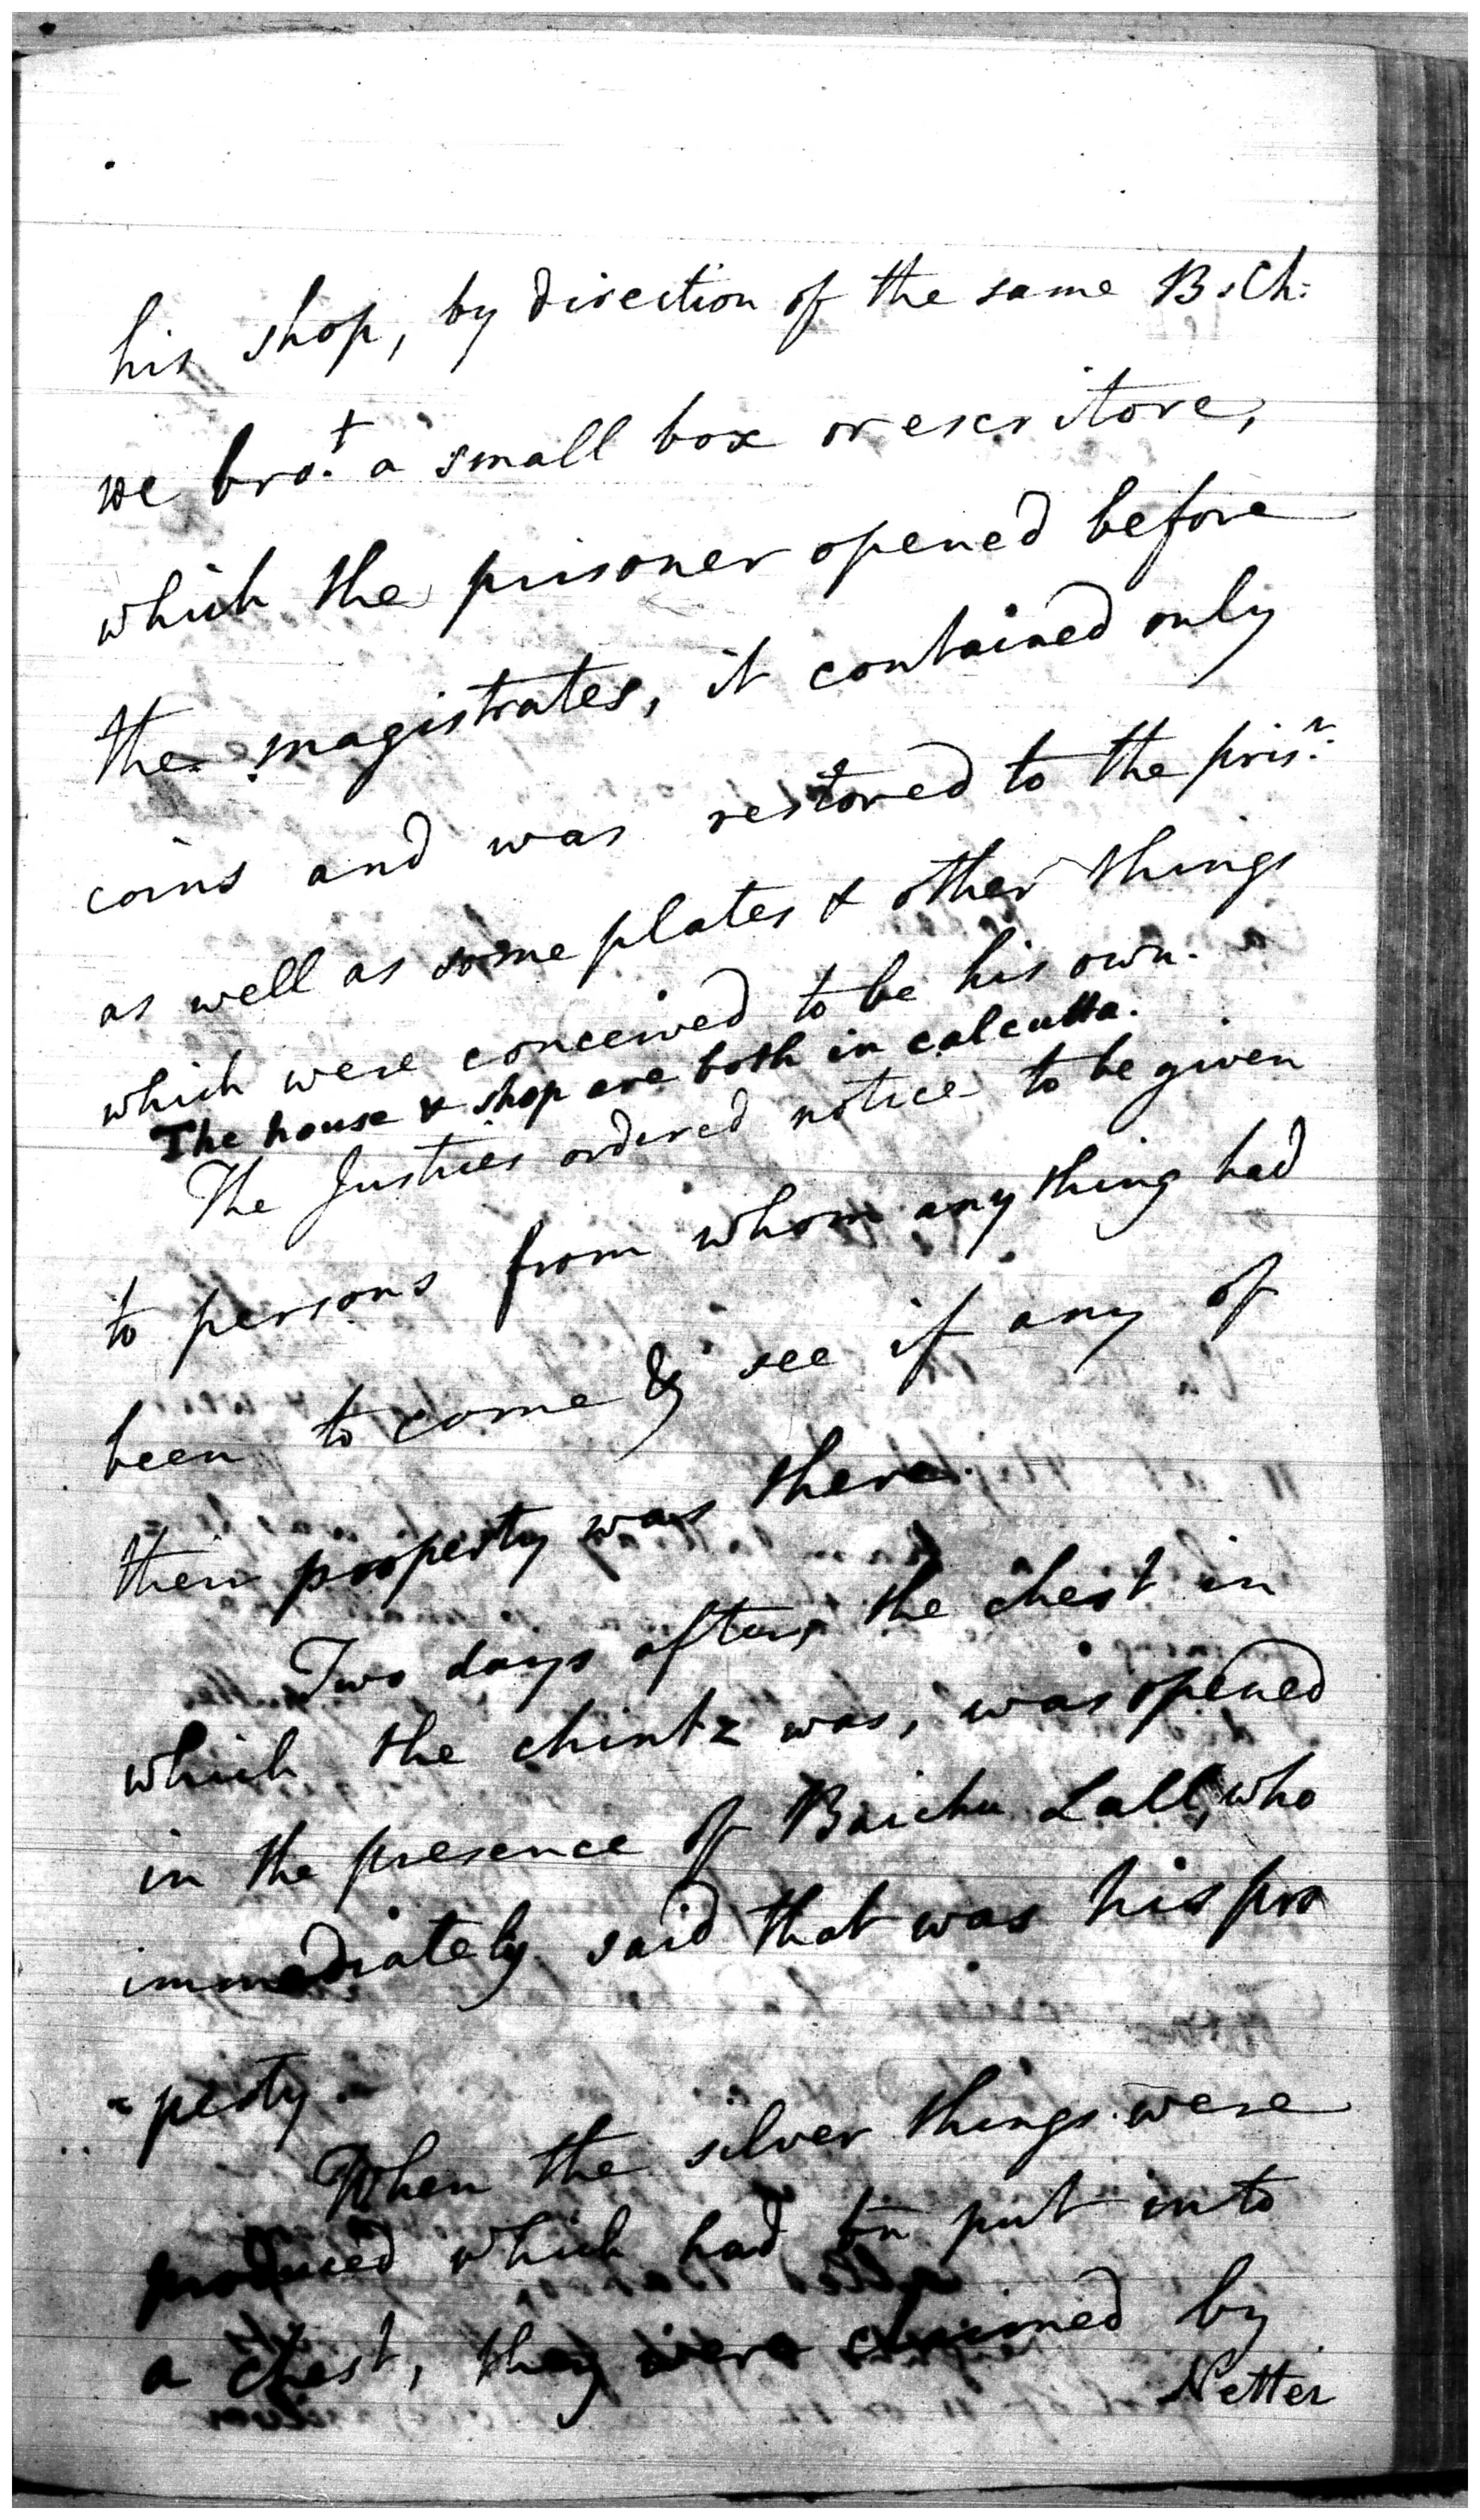 his shop, by direction of the same B. Ch:
we bro.t a small box or escritore,
which the prisoner opened before
the magistrates, it contained only
coins and was restored to the pris.r
as well as some plates & other things
which were conceived to be his own.
The house & shop are both in calcutta.
The Justices ordered notice to be given
to persons from whom any thing had
been to come & see if any of
their property was there.
Two days after, the chest in
which the chintz was, was opened
in the presence of Baichu Lall, who
immediately said that was his pro
-perty.
When the silver things were
produced which had bn put into
a chest, they were claimed by
Netter